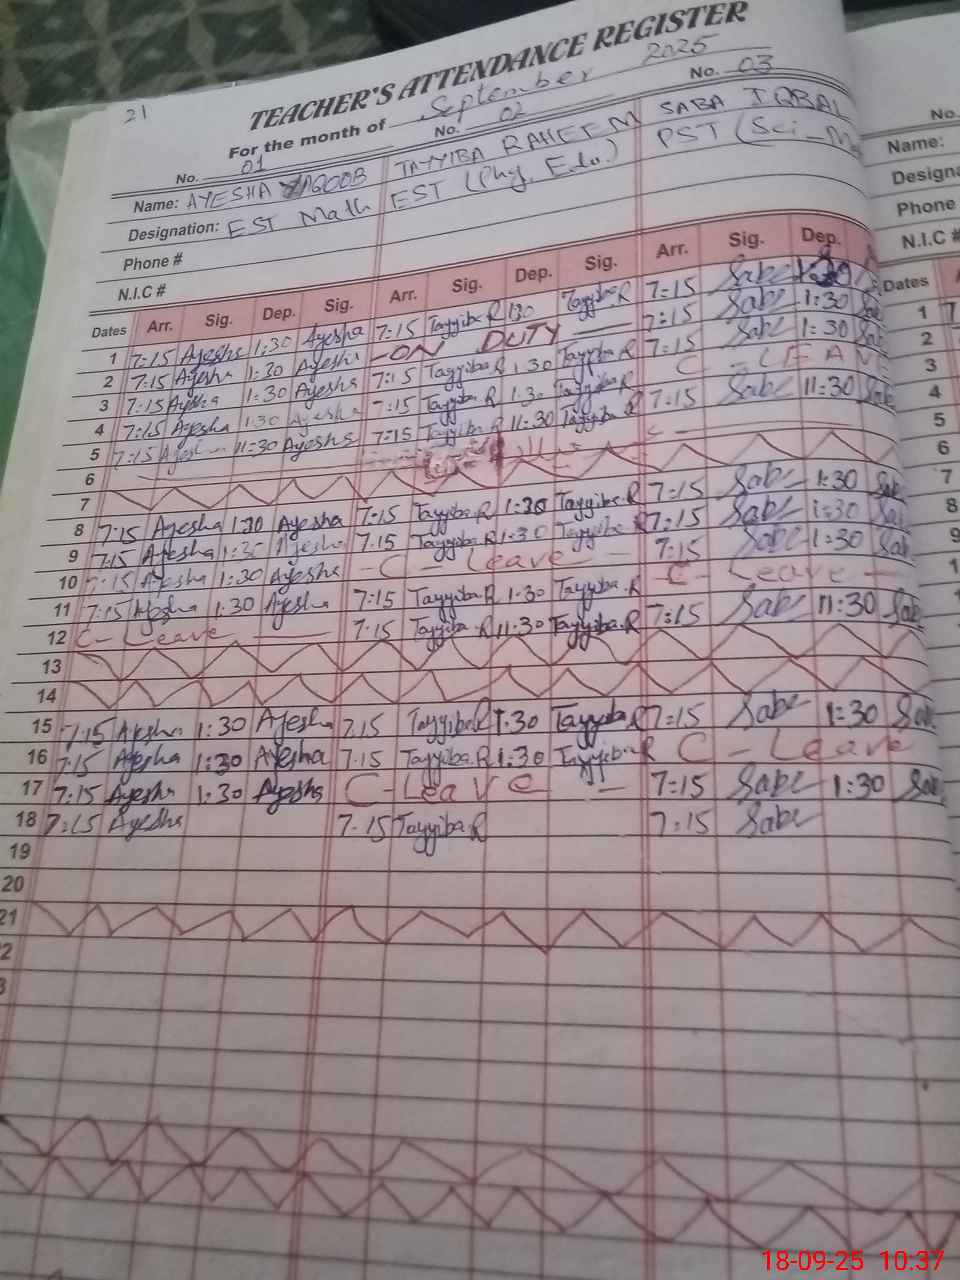 21
TEACHER'S ATTENDANCE REGISTER
For the month of September 2025
No. 01 No. 02 No. 03
Name: AYESHA YAQOOB TAYYIBA RAHEEM SABA IQBAL
Designation: EST Math EST (Phy. Edu.) PST (Sci_M
Phone #
N.I.C #
Dates Arr. Sig. Dep. Sig. Arr. Sig. Dep. Sig. Arr. Sig. Dep.
1 7:15 Ayesha 1:30 Ayesha 7:15 Tayyiba R 1:30 Tayyiba R 7:15 Saba 1:30
2 7:15 Ayesha 1:30 Ayesha - ON DUTY - 7:15 Saba 1:30 Saba
3 7:15 Ayesha 1:30 Ayesha 7:15 Tayyiba R 1:30 Tayyiba R 7:15 Saba 1:30 Saba
4 7:15 Ayesha 1:30 Ayesha 7:15 Tayyiba R 1:30 Tayyiba R C - LEAVE
5 7:15 Ayesha 11:30 Ayesha 7:15 Tayyiba R 11:30 Tayyiba R 7:15 Saba 11:30 Saba
6
7
8 7:15 Ayesha 1:30 Ayesha 7:15 Tayyiba.R 1:30 Tayyiba.R 7:15 Saba 1:30 Saba
9 7:15 Ayesha 1:30 Ayesha 7:15 Tayyiba.R 1:30 Tayyiba R 7:15 Saba 1:30 Saba
10 7:15 Ayesha 1:30 Ayesha - C - Leave - 7:15 Saba 1:30 Saba
11 7:15 Ayesha 1:30 Ayesha 7:15 Tayyiba.R 1:30 Tayyiba.R - C - Leave -
12 C - Leave 7:15 Tayyiba.R 11:30 Tayyiba.R 7:15 Saba 11:30 Saba
13
14
15 7:15 Ayesha 1:30 Ayesha 7:15 Tayyiba R 1:30 Tayyiba R 7:15 Saba 1:30 Saba
16 7:15 Ayesha 1:30 Ayesha 7:15 Tayyiba.R 1:30 Tayyiba R C - Leave
17 7:15 Ayesha 1:30 Ayesha C - Leave - 7:15 Saba 1:30 Saba
18 7:15 Ayesha 7:15 Tayyiba.R 7:15 Saba
19
20
21
2
3
No.
Name:
Designa
Phone
N.I.C #
Dates
1 7
2
3
4
5
6
7
8
9
18-09-25 10:37